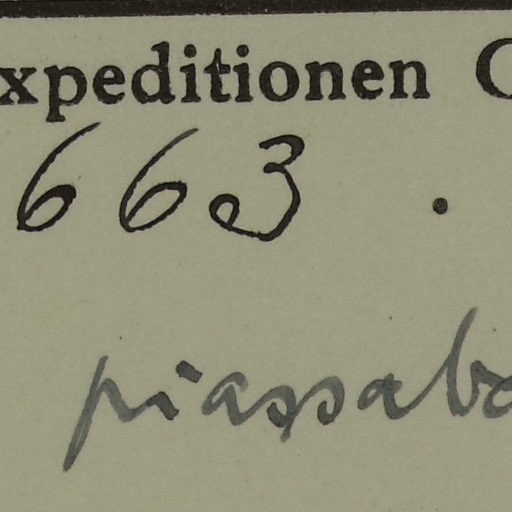 xpeditionen C
663.
piassaba